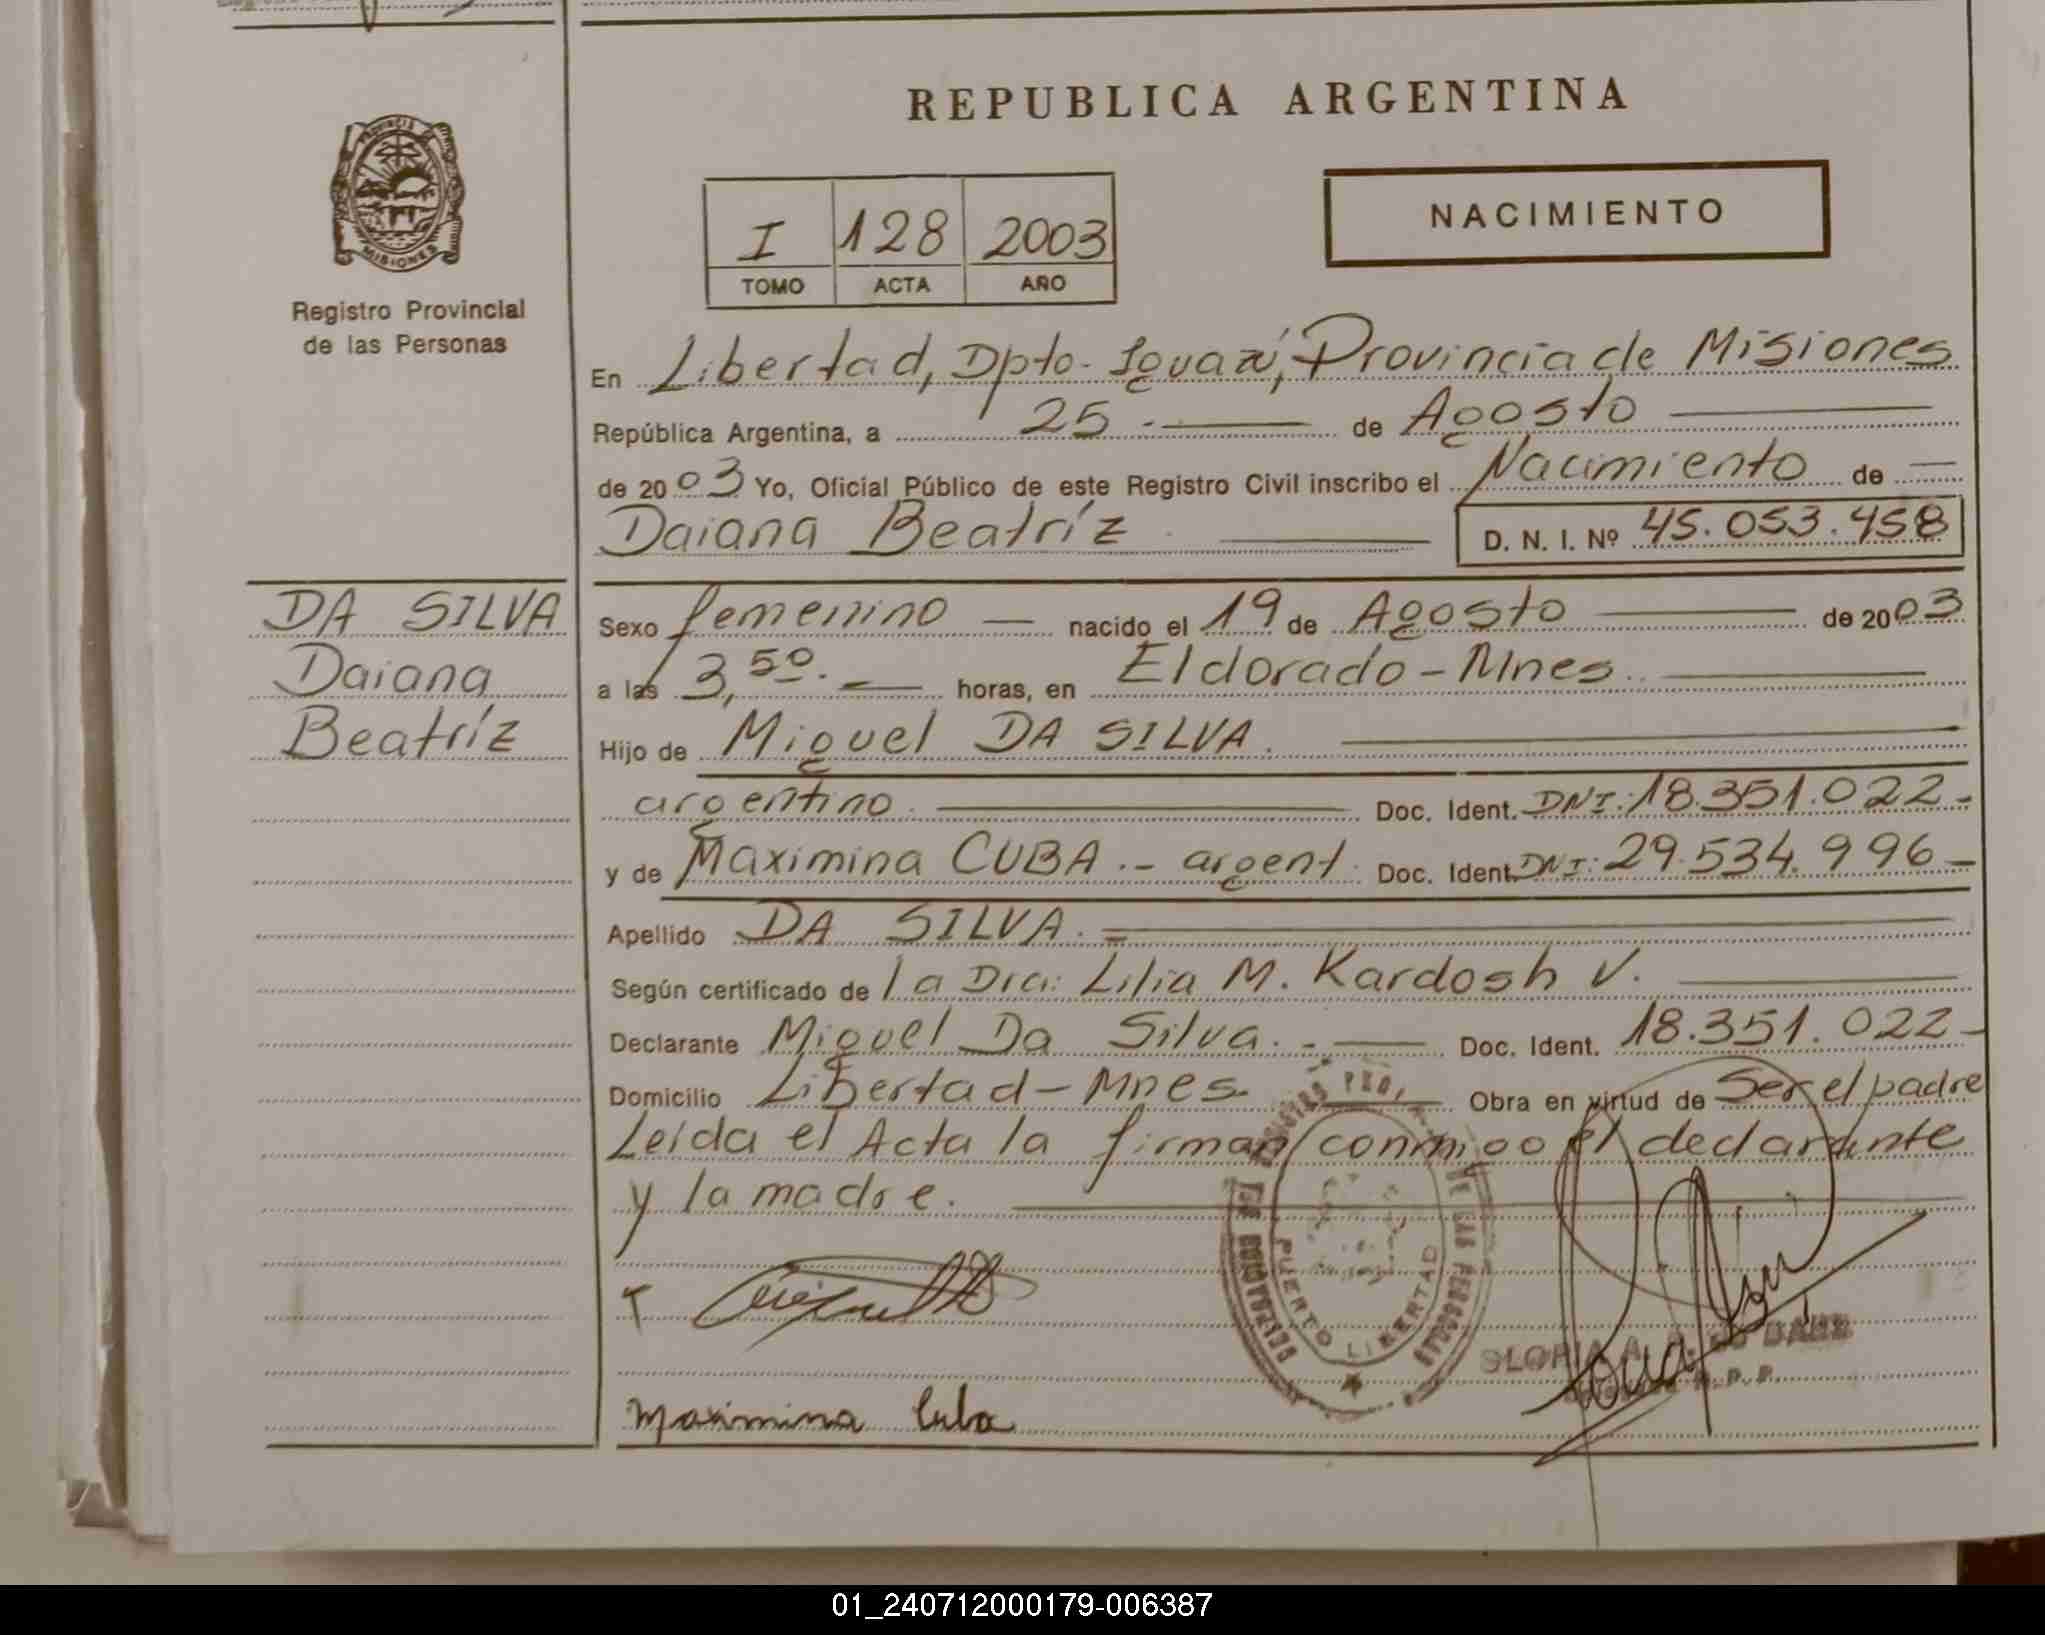 REPUBLICA ARGENTINA
PROVINCIA DE
MISIONES
Registro Provincial
de las Personas
I 128 2003
TOMO ACTA AÑO
NACIMIENTO
En Libertad, Dpto. Iguazú, Provincia de Misiones
República Argentina, a 25 de Agosto
de 2003 Yo, Oficial Público de este Registro Civil inscribo el Nacimiento de
Daiana Beatríz D. N. I. Nº 45.053.458
DA SILVA
Daiana
Beatríz
Sexo femenino nacido el 19 de Agosto de 2003
a las 3,50. horas, en Eldorado - Mnes.
Hijo de Miguel DA SILVA.
argentino. Doc. Ident. DNI: 18.351.022 -
y de Maximina CUBA. - argent. Doc. Ident. DNI: 29.534.996 -
Apellido DA SILVA. =
Según certificado de la Dra: Lilia M. Kardosh V.
Declarante Miguel Da Silva. - Doc. Ident. 18.351.022 -
Domicilio Libertad - Mnes. Obra en virtud de Ser el padre
Leída el Acta la firman conmigo el declarante
y la madre.
PUERTO LIBERTAD
DE LAS PERSONAS
GLORIA A.
Maximina Cuba
01_240712000179-006387